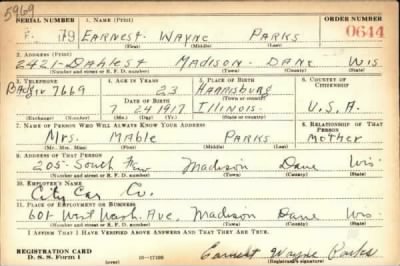 5969
SERIAL NUMBER 1. NAME (Print) ORDER NUMBER
79 EARNEST WAYNE PARKS 0644
(First) (Middle) (Last)
2. ADDRESS (Print)
2421- MADISON- DANE WIS
(Number and street or R. F. D. number) (Town) (County) (State)
3. TELEPHONE 4. AGE IN YEARS 5. PLACE OF BIRTH 6. COUNTRY OF CITIZENSHIP
Badger 7669 23 HARRISBURG
DATE OF BIRTH (Town or county)
7 24 1917 ILLINOIS- U.S.A.
(Exchange) (Number) (Mo.) (Day) (Yr.) (State or country)
7. NAME OF PERSON WHO WILL ALWAYS KNOW YOUR ADDRESS 8. RELATIONSHIP OF THAT PERSON
Mrs. Mable PARKS MOTHER
(Mr., Mrs., Miss) (First) (Middle) (Last)
9. ADDRESS OF THAT PERSON
205- South Madison Dane Wis-
(Number and street or R. F. D. number) (Town) (County) (State)
10. EMPLOYER'S NAME
City Car Co.
11. PLACE OF EMPLOYMENT OR BUSINESS
601- West Wash. Ave. Madison Dane Wis.
(Number and street or R. F. D. number) (Town) (County) (State)
I AFFIRM THAT I HAVE VERIFIED ABOVE ANSWERS AND THAT THEY ARE TRUE.
REGISTRATION CARD
D. S. S. Form 1 (over) Earnest Wayne Parks
(Registrant's signature)